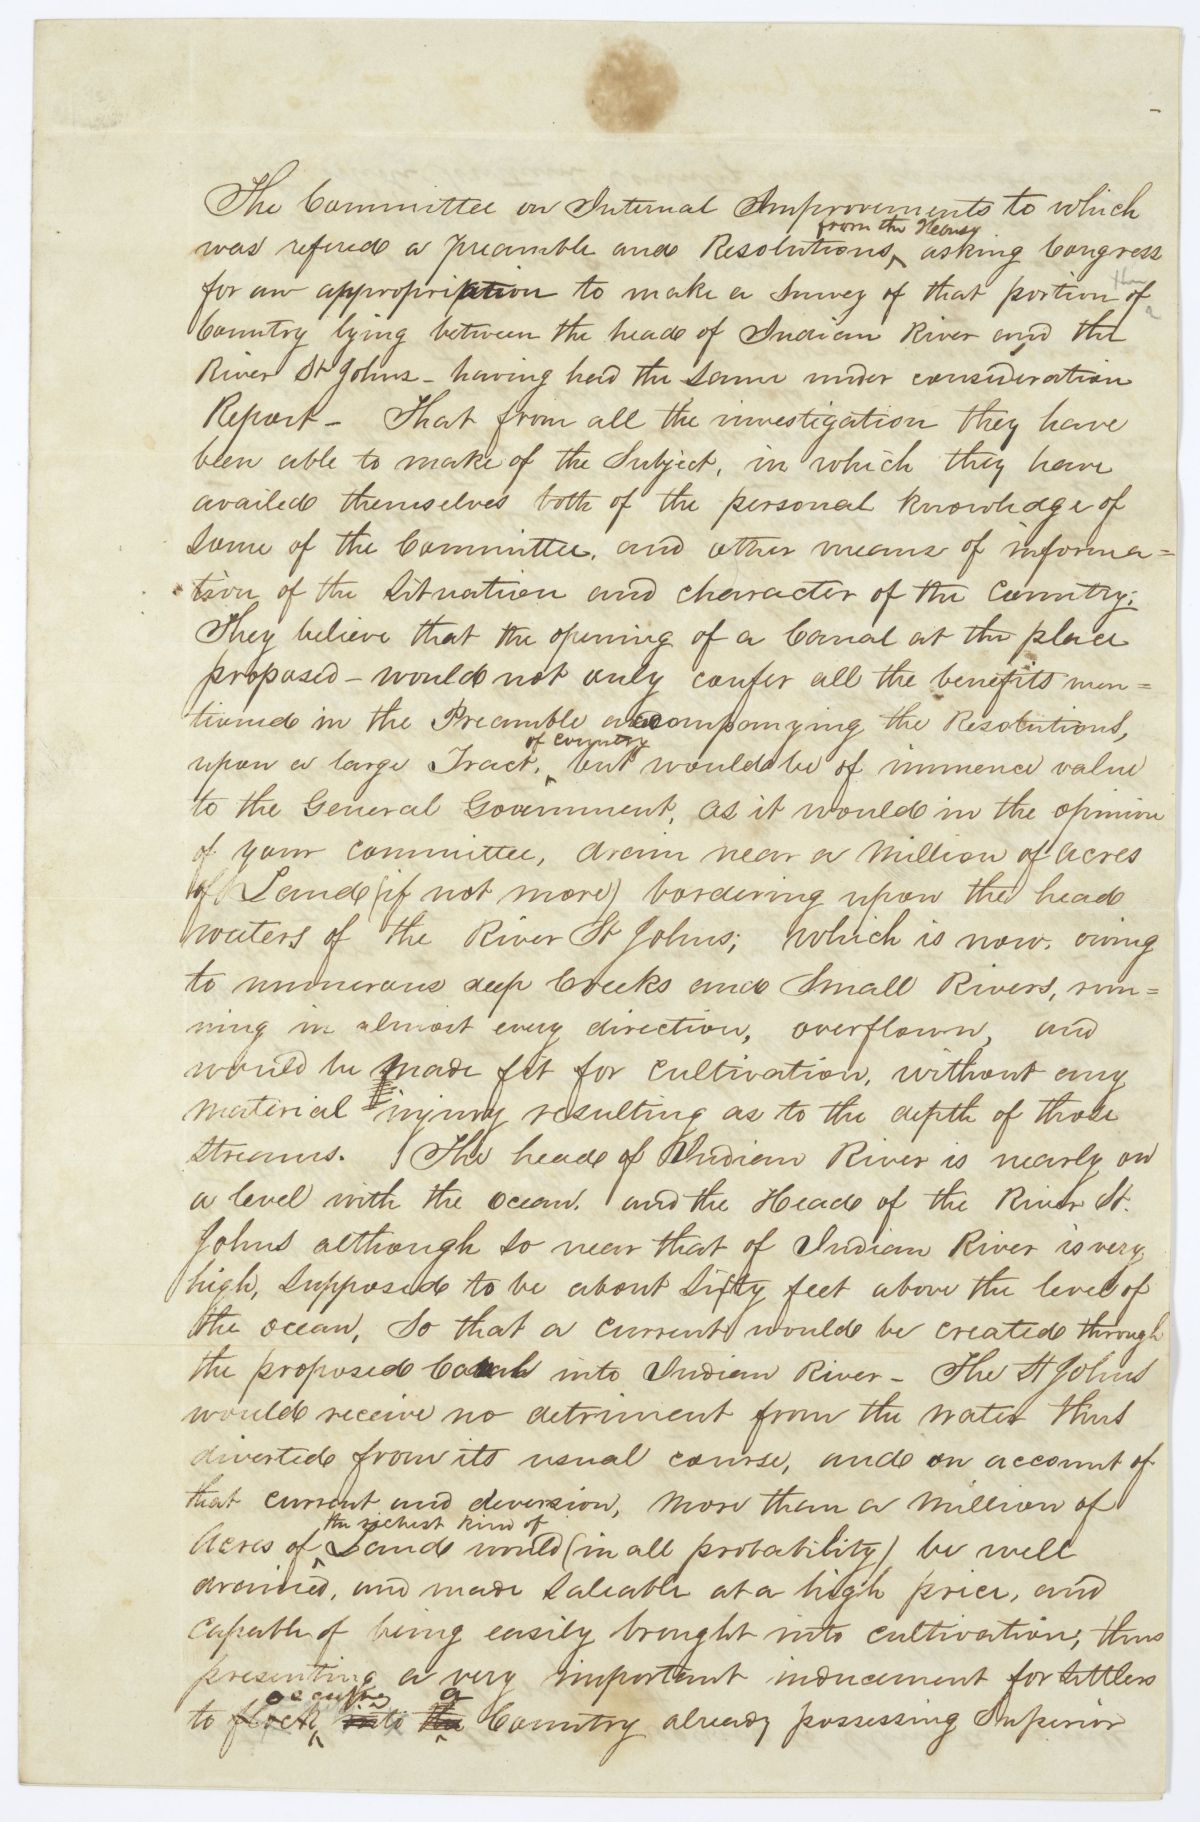 The Committee on Internal Improvements to which
from the House
was refered a preamble and Resolutions, asking Congress
for an appropriation to make a Survey of that portion of
Country lying between the head of Indian River and the
River St Johns - having had the same under consideration
Report - That from all the investigation they have
been able to make of the Subject, in which they have
availed themselves both of the personal knowledge of
some of the Committee, and other means of informa=
tion of the Situation and character of the Country;
They believe that the opening of a Canal at the place
proposed - would not only confer all the benefits men=
tioned in the Preamble accompanying the Resolutions,
of country
upon a large Tract, but would be of immence value
to the General Government, as it would in the opinion
of your committee, drain near a Million of acres
of Land (if not more) bordering upon the head
waters of the River St Johns; which is now, owing
to numerous deep Creeks and Small Rivers, run=
ning in almost every direction, overflown, and
would be made fit for cultivation, without any
material injury resulting as to the depth of those
streams. The head of Indian River is nearly on
a level with the ocean, and the Head of the River St.
Johns although so near that of Indian River is very
high, supposed to be about Sixty feet above the level of
the ocean, So that a current would be created through
the proposed Canal into Indian River - The St Johns
would receive no detriment from the water thus
diverted from its usual course, and on account of
that current and diversion, more than a Million of
the richest kind of
Acres of Land would (in all probability) be well
drained, and made Saleable at a high price, and
capable of being easily brought into cultivation; thus
presenting a very important inducement for Settlers
a
to flock into the Country already possessing Superior